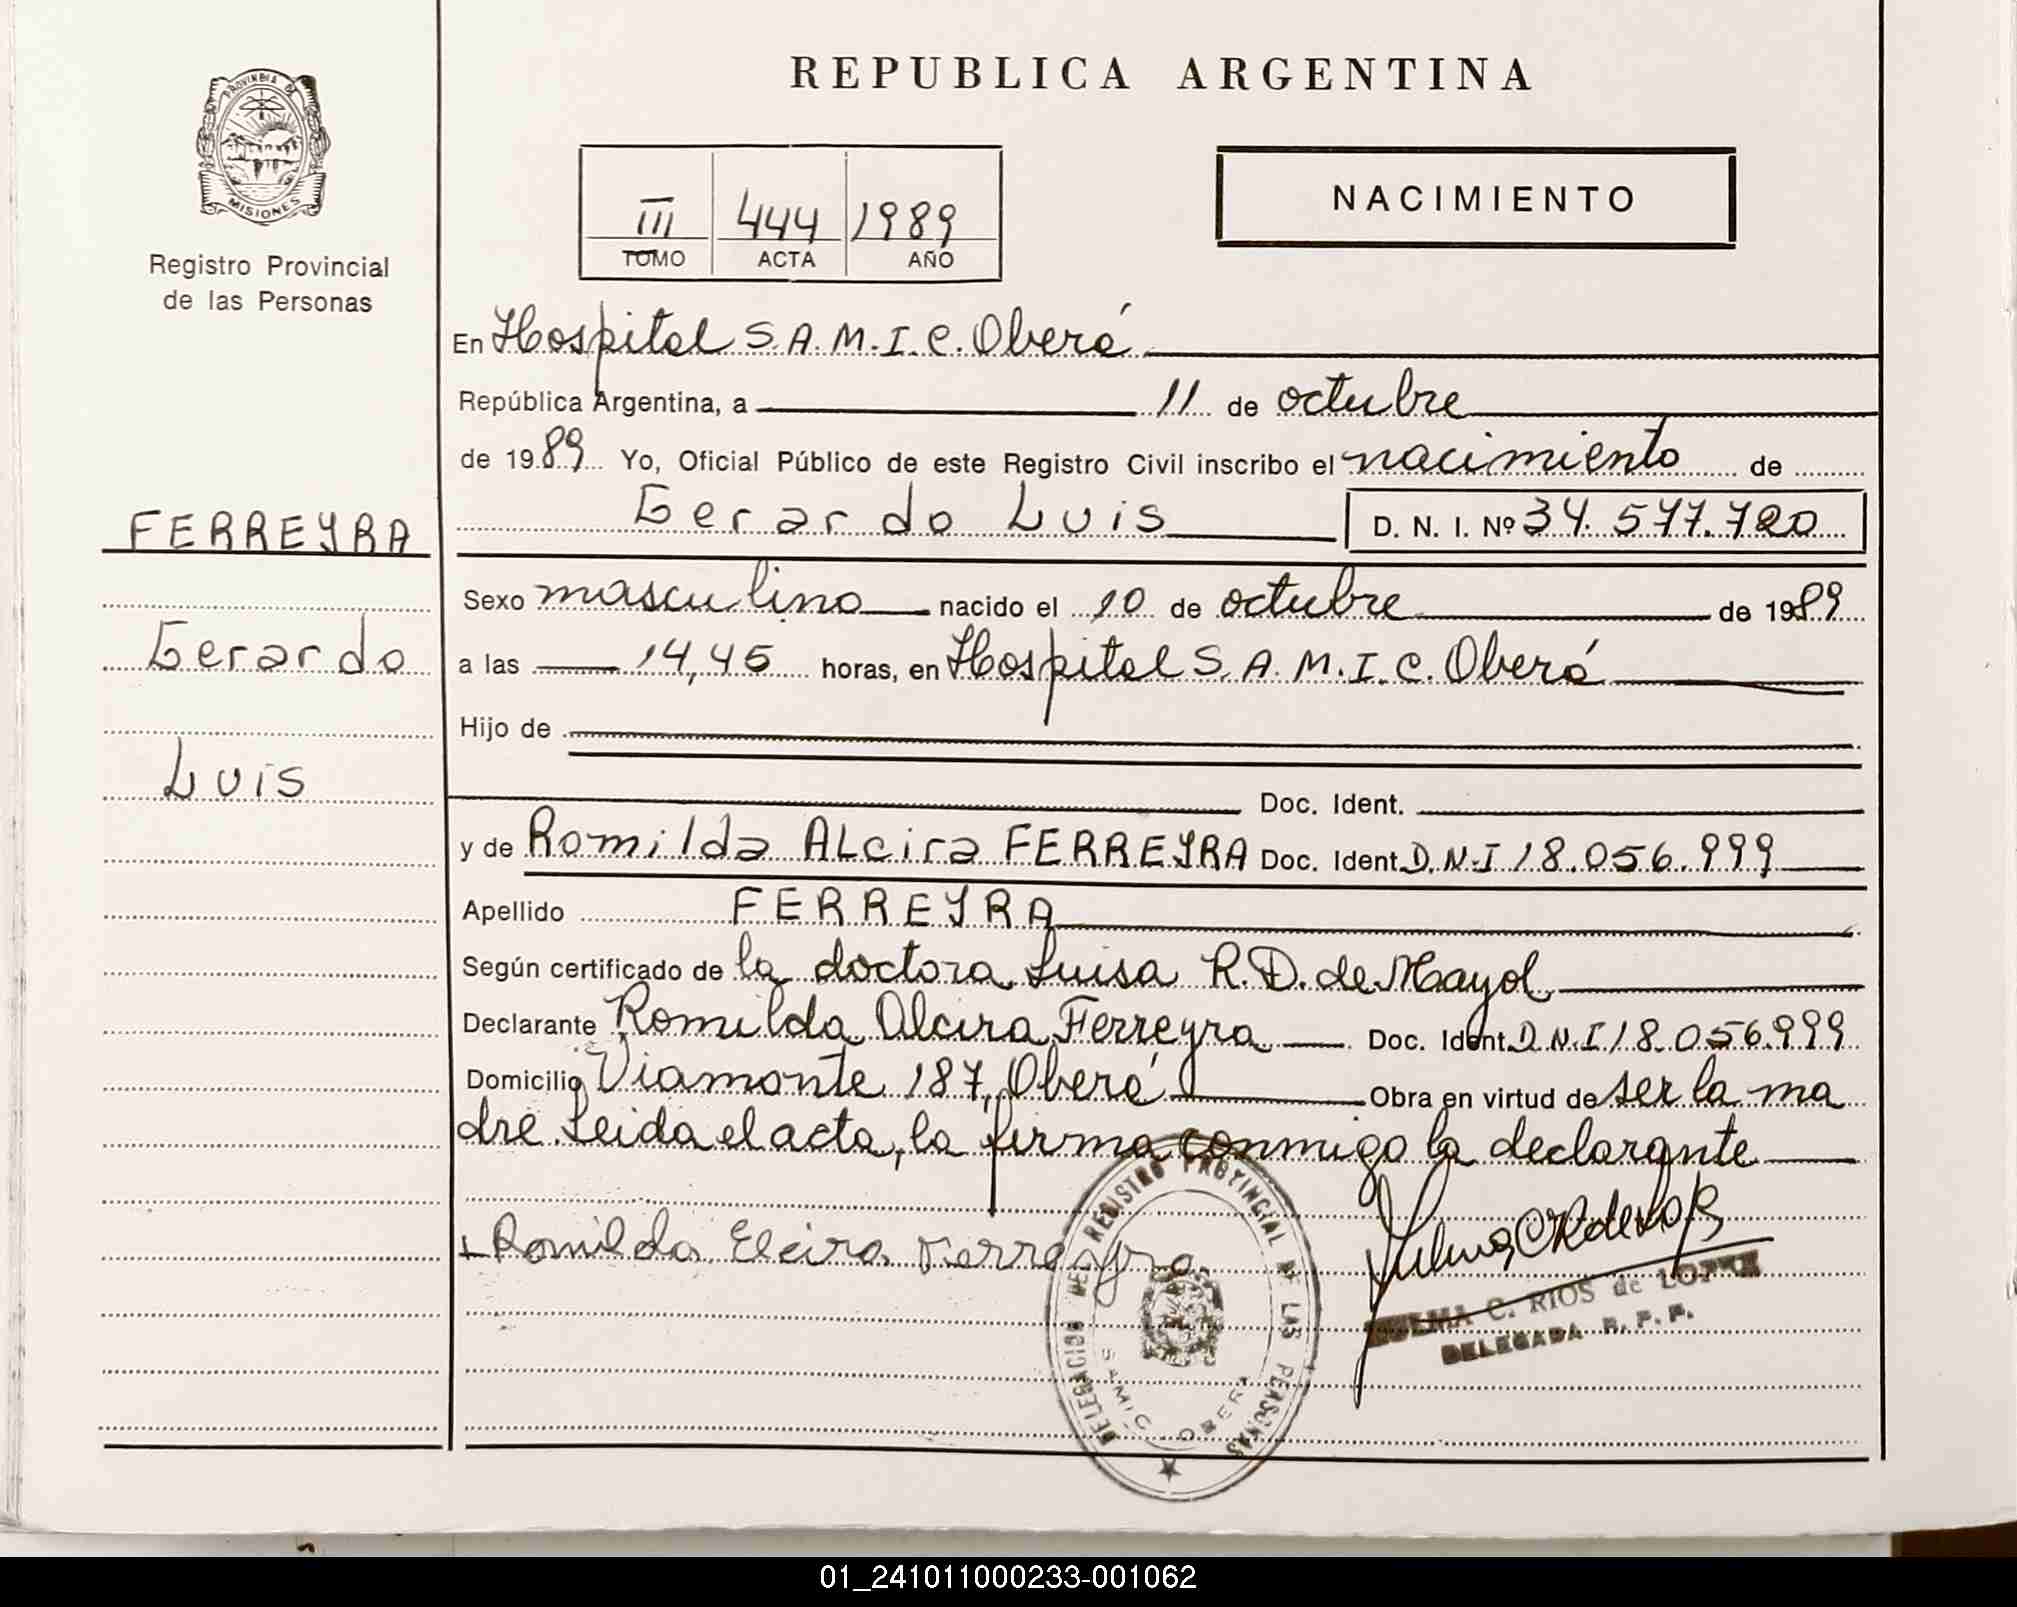 REPUBLICA ARGENTINA
PROVINCIA DE
MISIONES
Registro Provincial
de las Personas
III 444 1989
TOMO ACTA AÑO
NACIMIENTO
En Hospital S.A.M.I.C. Oberá
República Argentina, a 11 de octubre
de 1989 Yo, Oficial Público de este Registro Civil inscribo el nacimiento de
Gerardo Luis D. N. I. Nº 34.577.720
FERREYRA
Gerardo
Luis
Sexo masculino nacido el 10 de octubre de 1989
a las 14,45 horas, en Hospital S.A.M.I.C. Oberá
Hijo de
Doc. Ident.
y de Romilda ALcira FERREYRA Doc. Ident. D.N.I 18.056.999
Apellido FERREYRA
Según certificado de la doctora Luisa R.D. de Mayol
Declarante Romilda Alcira Ferreyra Doc. Ident. D.N.I 18.056.999
Domicilio Viamonte 187, Oberá Obra en virtud de ser la ma
dre. Leida el acta, la firma conmigo la declarante
Romilda Elcira Ferreyra
C. RIOS de LOPEZ
DELEGADA R. P. P.
DELEGACION DEL REGISTRO PROVINCIAL DE LAS PERSONAS
SAMIC OBERA
01_241011000233-001062